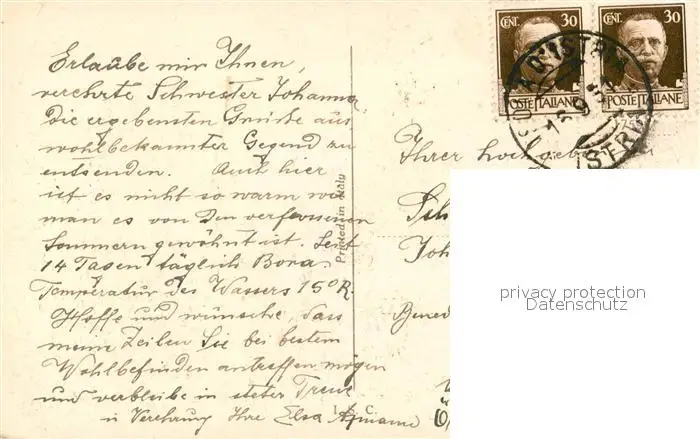 Erlaube mir Ihnen,
verehrte Schwester Johanna
die ergebensten Grüße aus
wohlbekannter Gegend zu
entsenden. Auch hier
ist es nicht so warm wie
man es von den verflossenen
Sommern gewöhnt ist. Seit
14 Tagen täglich Bora.
Temperatur des Wassers 15° R.
Hoffe und wünsche, dass
meine Zeilen Sie bei bestem
Wohlbefinden antreffen mögen
und verbleibe in steter Treue
u Verehrung Ihre Elsa
Printed in Italy
CENT. 30
POSTE ITALIANE
CENT. 30
POSTE ITALIANE
D'ISTRIA
Ihrer hochgeb
Sch
Joh
Bened
privacy protection
Datenschutz